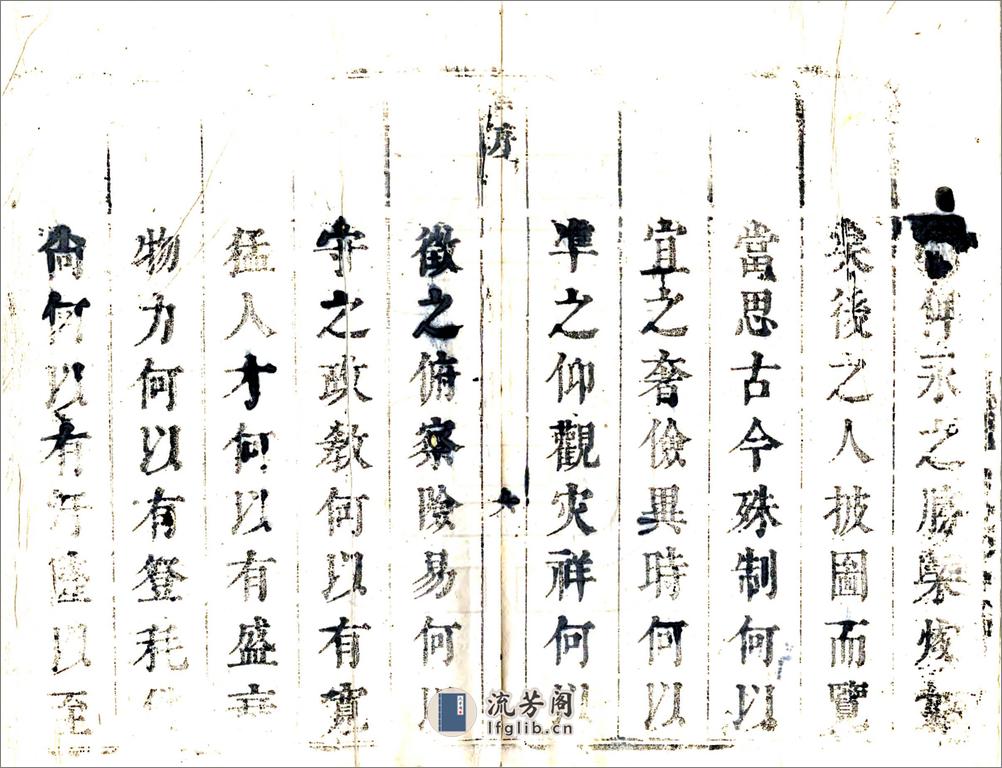 仰永之勝槩
來後之人披圖而覽
當思古今殊制何以
宜之奢儉異時何以
準之仰觀灾祥何以
序
六
徵之俯察險易何以
守之政教何以有寛
猛人才何以有盛
物力何以有登耗
尚何以有汙隆以至
流芳阁
lfglib.cn